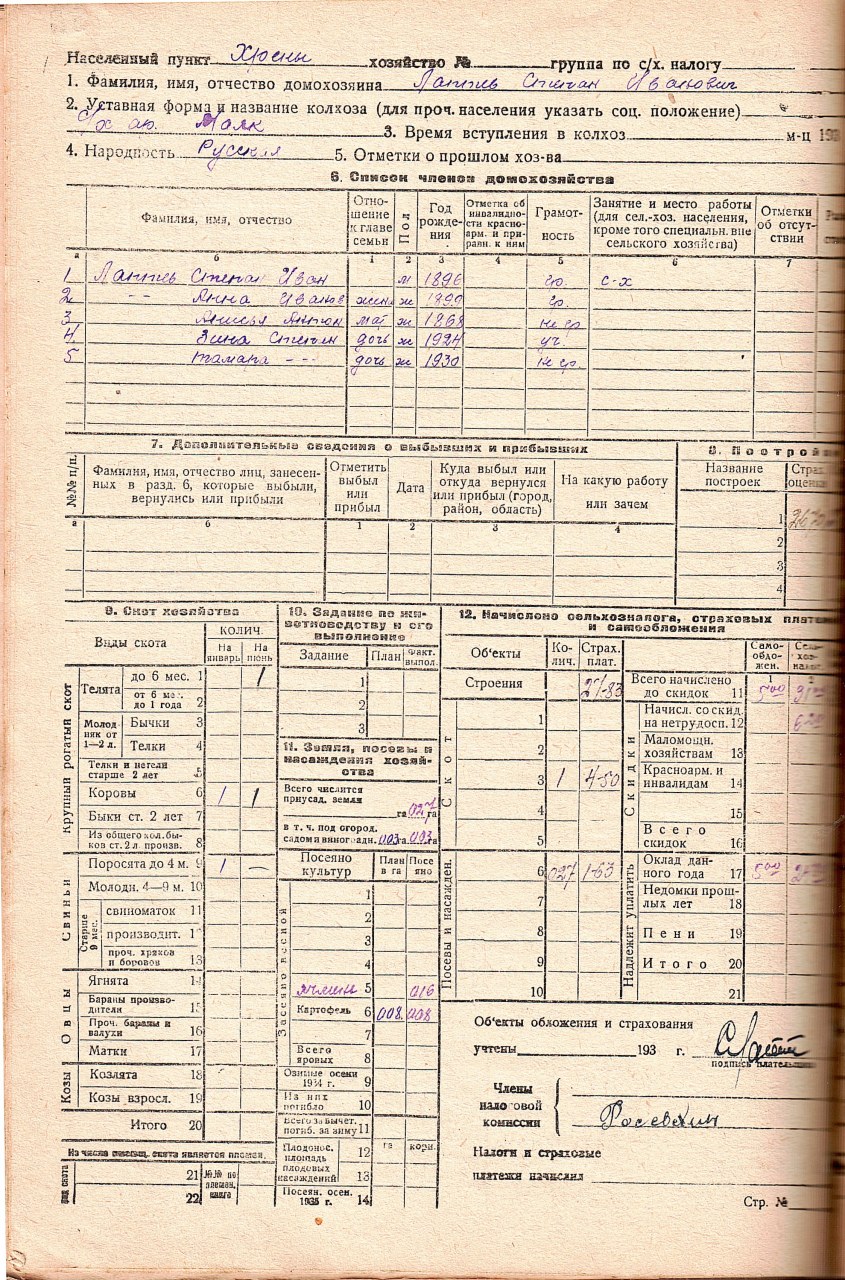 Населенный пункт Хрюны хозяйство № группа по с/х. налогу
1. Фамилия, имя, отчество домохозяина Лаптев Степан Иванович
2. Уставная форма и название колхоза (для проч. населения указать соц. положение)
Маяк 3. Время вступления в колхоз м-ц 193
4. Народность Русская 5. Отметки о прошлом хоз-ва
6. Список членов домохозяйства
Фамилия, имя, отчество Отношение к главе семьи Пол Год рождения Отметка об инвалидности красноарм. и приравн. к ним Грамотность Занятие и место работы (для сел.-хоз. населения, кроме того специальн. вне сельского хозяйства) Отметки об отсутствии
а б 1 2 3 4 5 6 7
1 Лаптев Степан Иван м 1896 гр. с-х
2 -"- Анна Иванов жена ж 1899 гр.
3 Анисья Антон мат ж 1868 не гр
4 Зина Степан дочь ж 1924 уч.
5 Тамара -"- дочь ж 1930 не гр.
7. Дополнительные сведения о выбывших и прибывших
№№ п/п. Фамилия, имя, отчество лиц, занесенных в разд. 6, которые выбыли, вернулись или прибыли Отметить выбыл или прибыл Дата Куда выбыл или откуда вернулся или прибыл (город, район, область) На какую работу или зачем
а б 1 2 3 4
8. Построй
Название построек Страх. оценка
1
2
3
4
9. Скот хозяйства
Виды скота КОЛИЧ. На январь На июнь
Крупный рогатый скот
Телята до 6 мес. 1 1
от 6 мес. до 1 года 2
Молодняк от 1—2 л. Бычки 3
Телки 4
Телки и нетели старше 2 лет 5
Коровы 6 1 1
Быки ст. 2 лет 7
Из общего кол. быков ст. 2 л произв. 8
Свиньи
Поросята до 4 м. 9 1 —
Молодн. 4—9 м. 10
Старше 9 мес. свиноматок 11
производит. 1
проч. хряков и боровов 13
Овцы
Ягнята 1
Бараны производители 15
Проч. бараны и валухи 16
Матки 17
Козы
Козлята 18
Козы взросл. 19
Итого 20
Из числа имеющ. скота является племен.
вид скота 21 №№ по племен. книге
22
10. Задание по животноводству и его выполнение
Задание План Факт. выпол.
1
2
3
11. Земля, посевы и насаждения хозяйства
Всего числится приусад. земля га 027 га
в т. ч. под огород. садом и виноградн. 003 га 003 га
Посеяно культур План в га Посеяно
Засеяно весной
1
2
3
4
ячмень 5 016
Картофель 6 008 008
7
Всего яровых 8
Озимые осени 1934 г. 9
Из них погибло 10
Всего за вычет. погиб. за зиму 11
Плодонос. площадь плодовых насаждений га корн.
12
13
Посеян. осен. 1935 г. 14
12. Начислено сельхозналога, страховых плат и самообложения
Объекты Колич. Страх. плат.
Строения 21-83
Скот
1
2
3 1 4-50
4
5
Посевы и насажден.
6 027 1-63
7
8
9
10
Самообложен. Сельхозналог
1 2
Всего начислено до скидок 11 5 00
Скидки
Начисл. со скид. на нетрудосп. 12
Маломощн. хозяйствам 13
Красноарм. и инвалидам 14
15
Всего скидок 16
Надлежит уплатить
Оклад данного года 17 5 00
Недомки прошлых лет 18
Пени 19
Итого 20
21
Об'екты обложения и страхования
учтены 193 г.
подпись плательщика
Члены налоговой комиссии
Налоги и страховые
платежи начислил
Стр. №